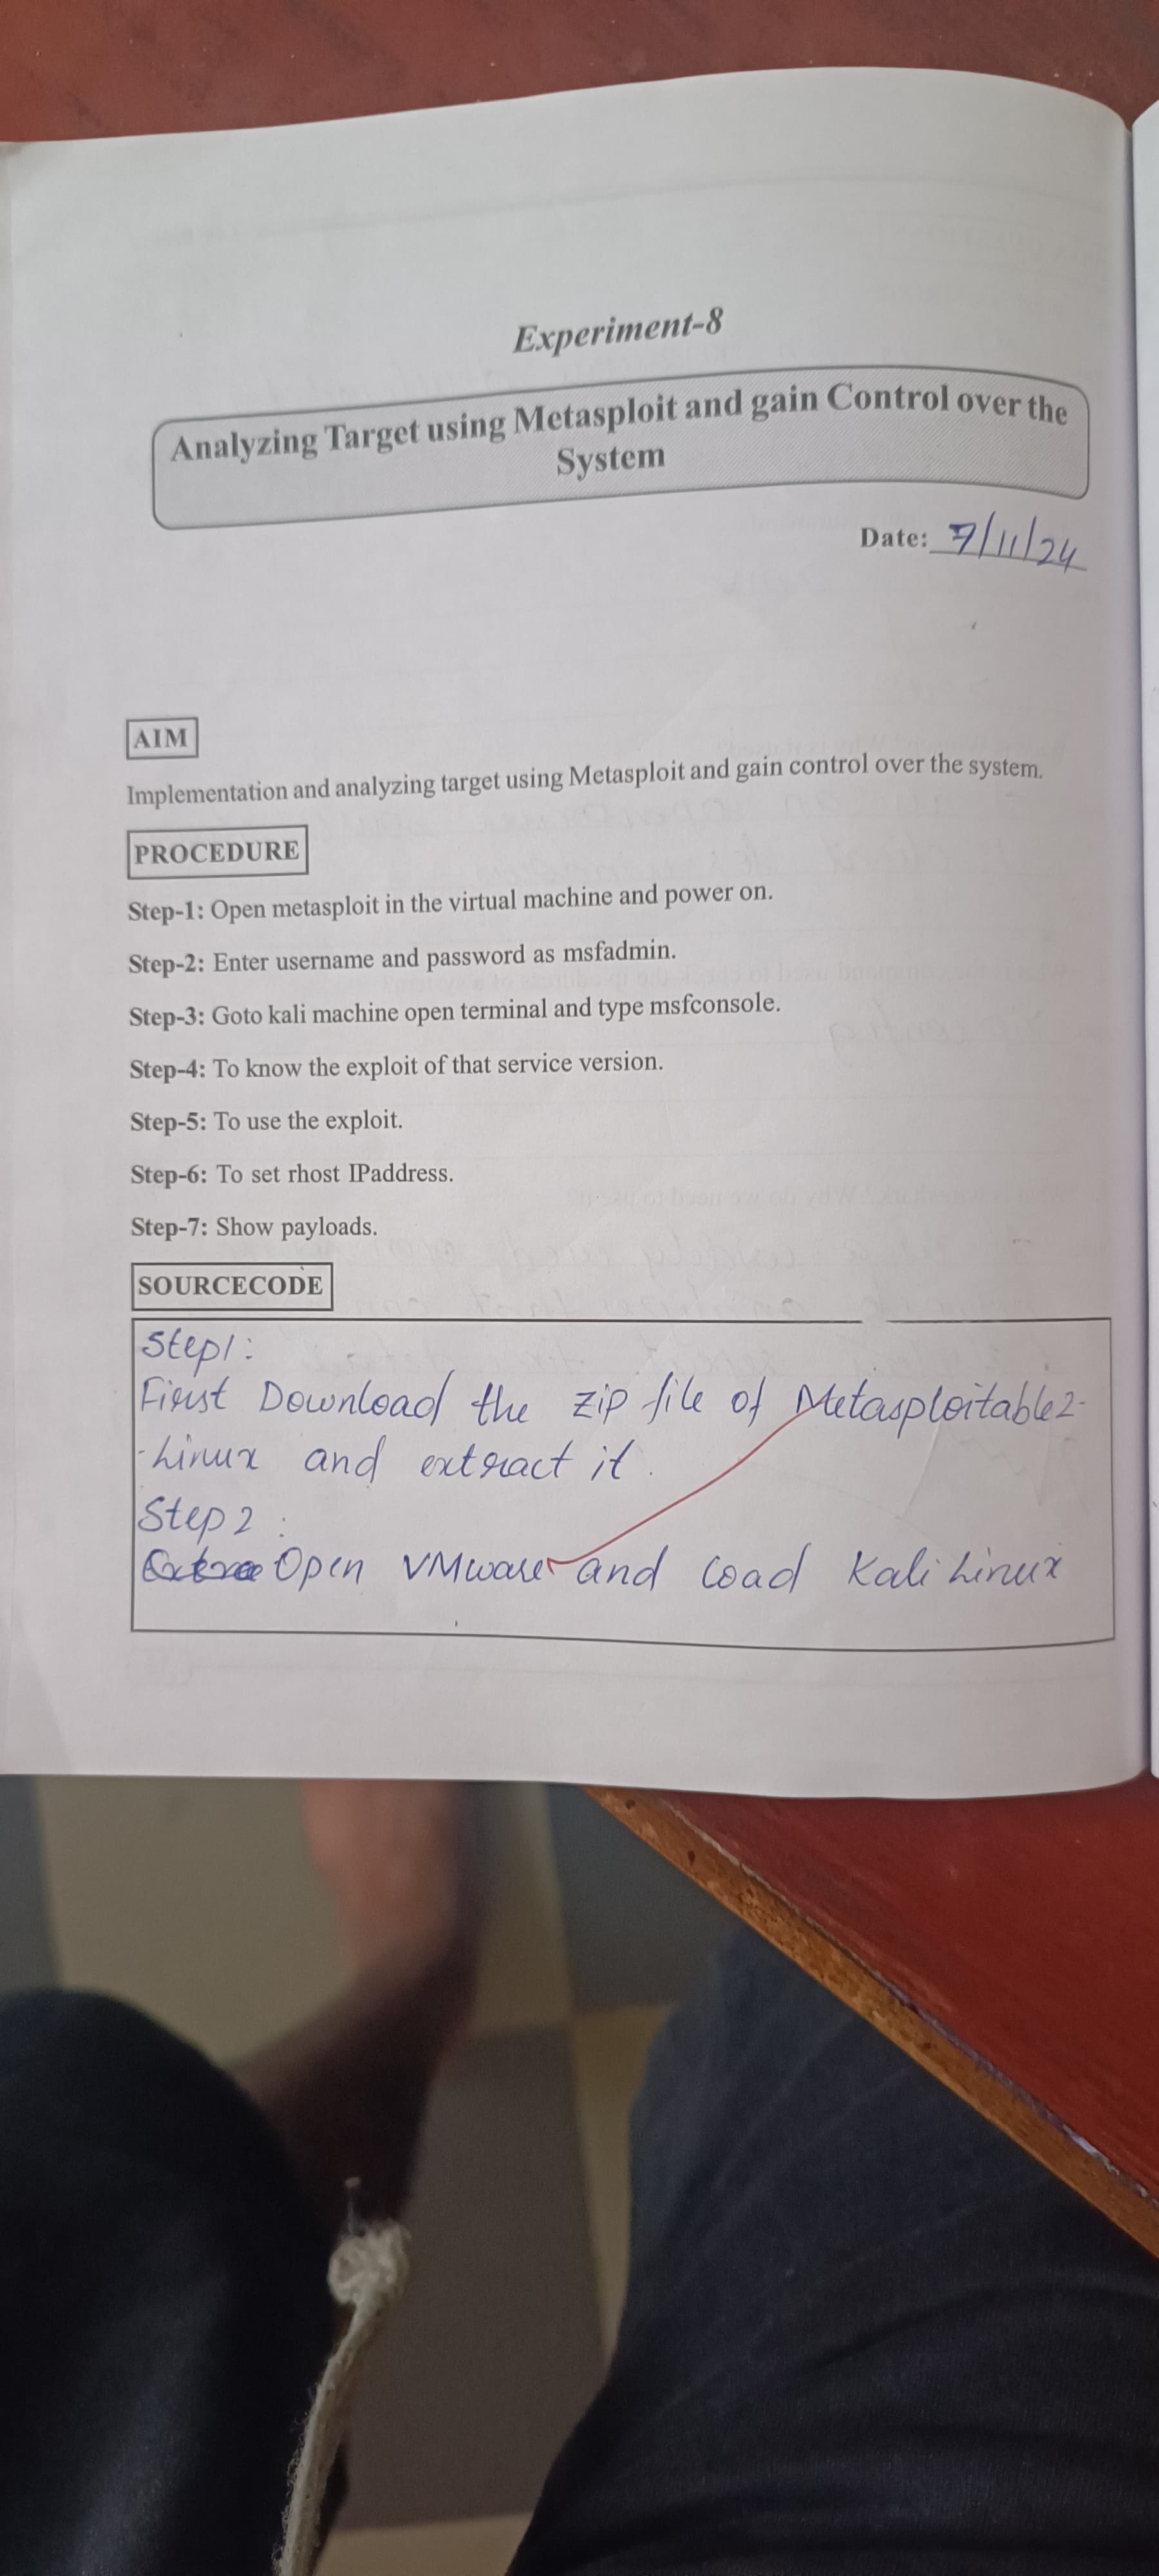 Experiment-8
Analyzing Target using Metasploit and gain Control over the
System
Date: 7/11/24
AIM
Implementation and analyzing target using Metasploit and gain control over the system.
PROCEDURE
Step-1: Open metasploit in the virtual machine and power on.
Step-2: Enter username and password as msfadmin.
Step-3: Goto kali machine open terminal and type msfconsole.
Step-4: To know the exploit of that service version.
Step-5: To use the exploit.
Step-6: To set rhost IPaddress.
Step-7: Show payloads.
SOURCECODE
Step1:
First Download the zip file of Metasploitable2-
-Linux and extract it.
Step 2:
Open VMware and load Kali Linux